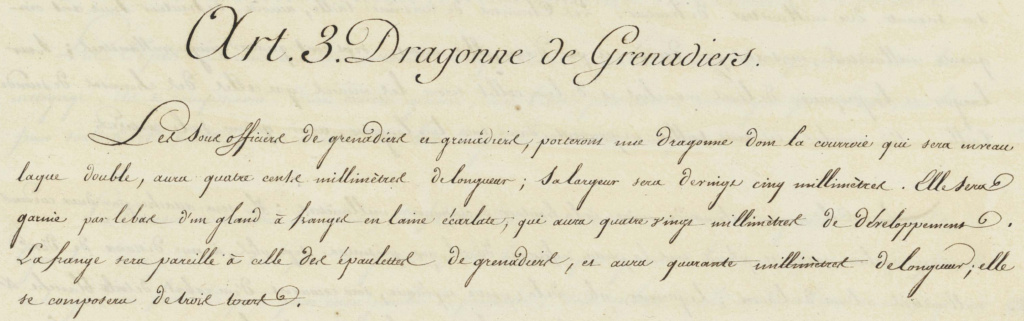 Art. 3. Dragonne de Grenadiers.
Les sous officiers de grenadiers et grenadiers, porteront une dragonne dont la courroie qui sera en veau
laque double, aura quatre cents millimètres de longueur; sa largeur sera de vingt cinq millimètres. Elle sera
garnie par le bas d'un gland à franges en laine écarlate, qui aura quatre vingt millimètres de développement.
La frange sera pareille à celle des épaulettes de grenadiers, et aura quarante millimètres de longueur; elle
se composera de trois tours.